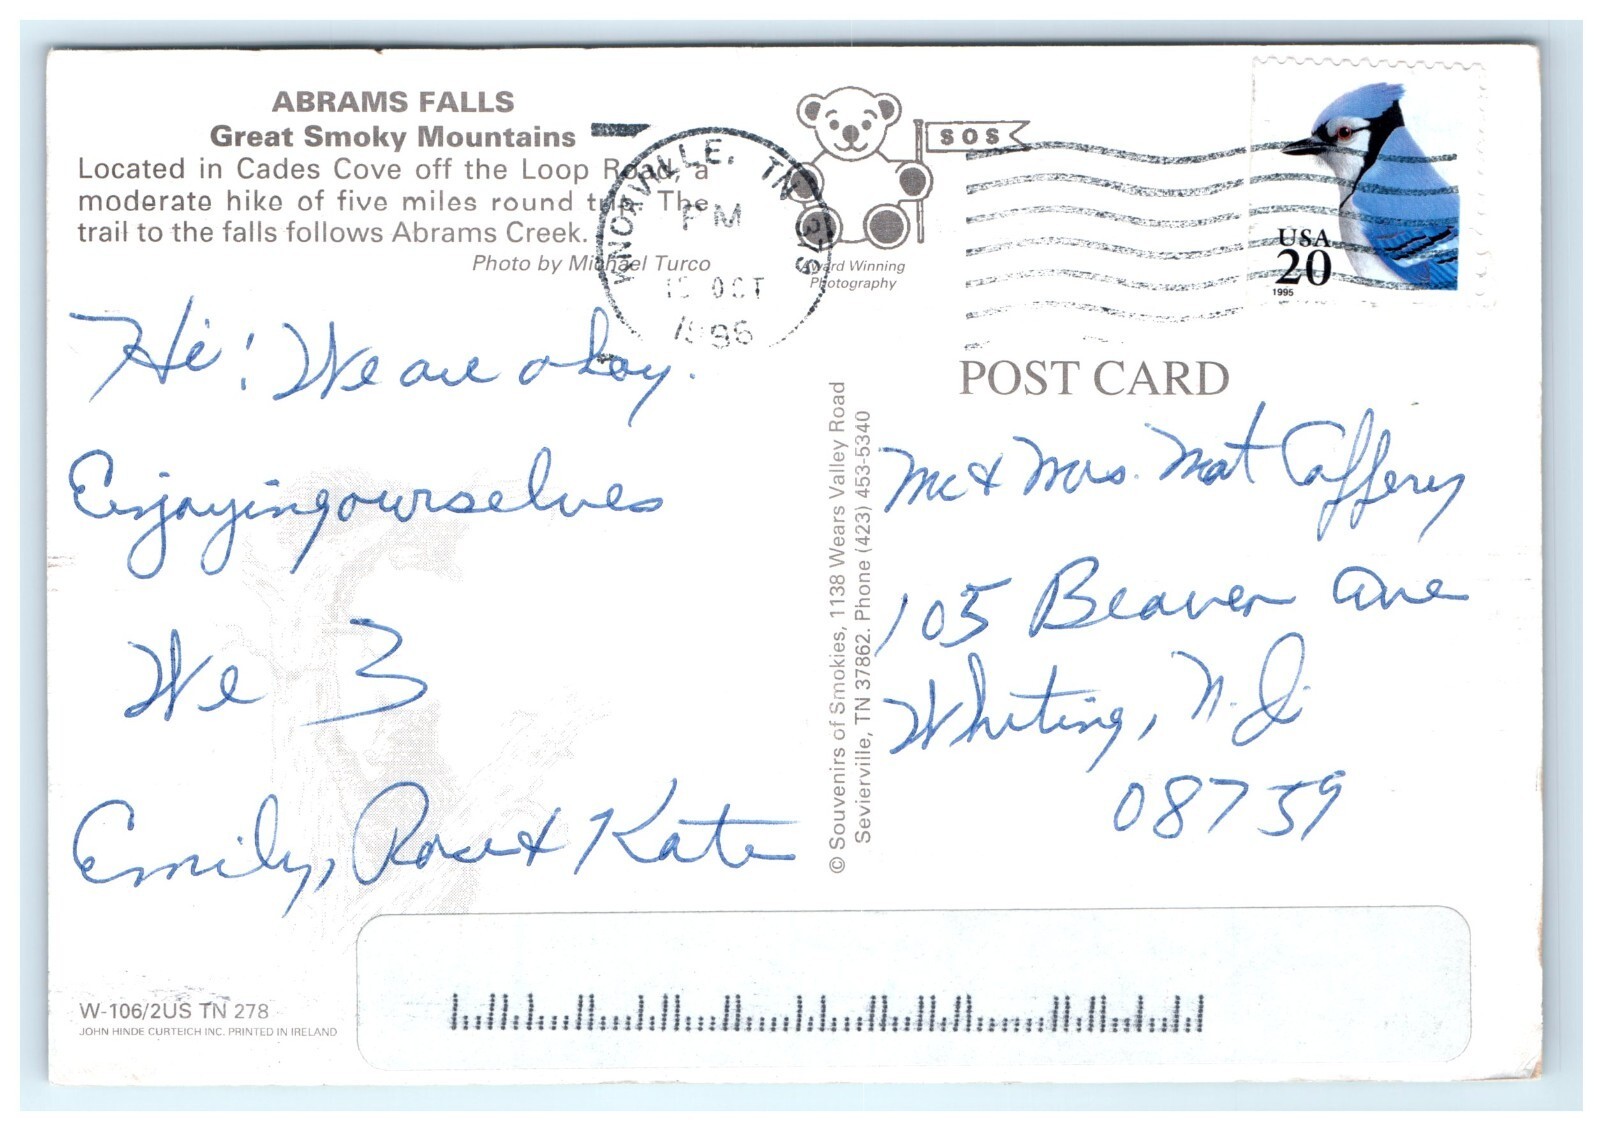 ABRAMS FALLS
Great Smoky Mountains
Located in Cades Cove off the Loop Road, a
moderate hike of five miles round trip. The
trail to the falls follows Abrams Creek.
Photo by Michael Turco
KNOXVILLE, TN
PM
OCT
1996
SOS
Award Winning
Photography
USA
20
1995
POST CARD
Hi! We are okay.
Enjoying ourselves
We 3
Emily, Rose & Kate
© Souvenirs of Smokies, 1138 Wears Valley Road
Sevierville, TN 37862. Phone (423) 453-5340
Mr & Mrs. Mat Caffery
105 Beaver Ave
Whiting, N.J.
08759
W-106/2US TN 278
JOHN HINDE CURTEICH INC. PRINTED IN IRELAND